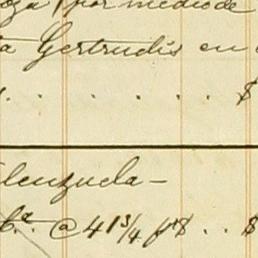 oza por medio de
a Gertrudis en
. . . . . $
lenzuela —
@ 41¾ . . $